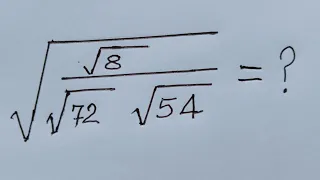 √(√8 / (√72 √54)) = ?